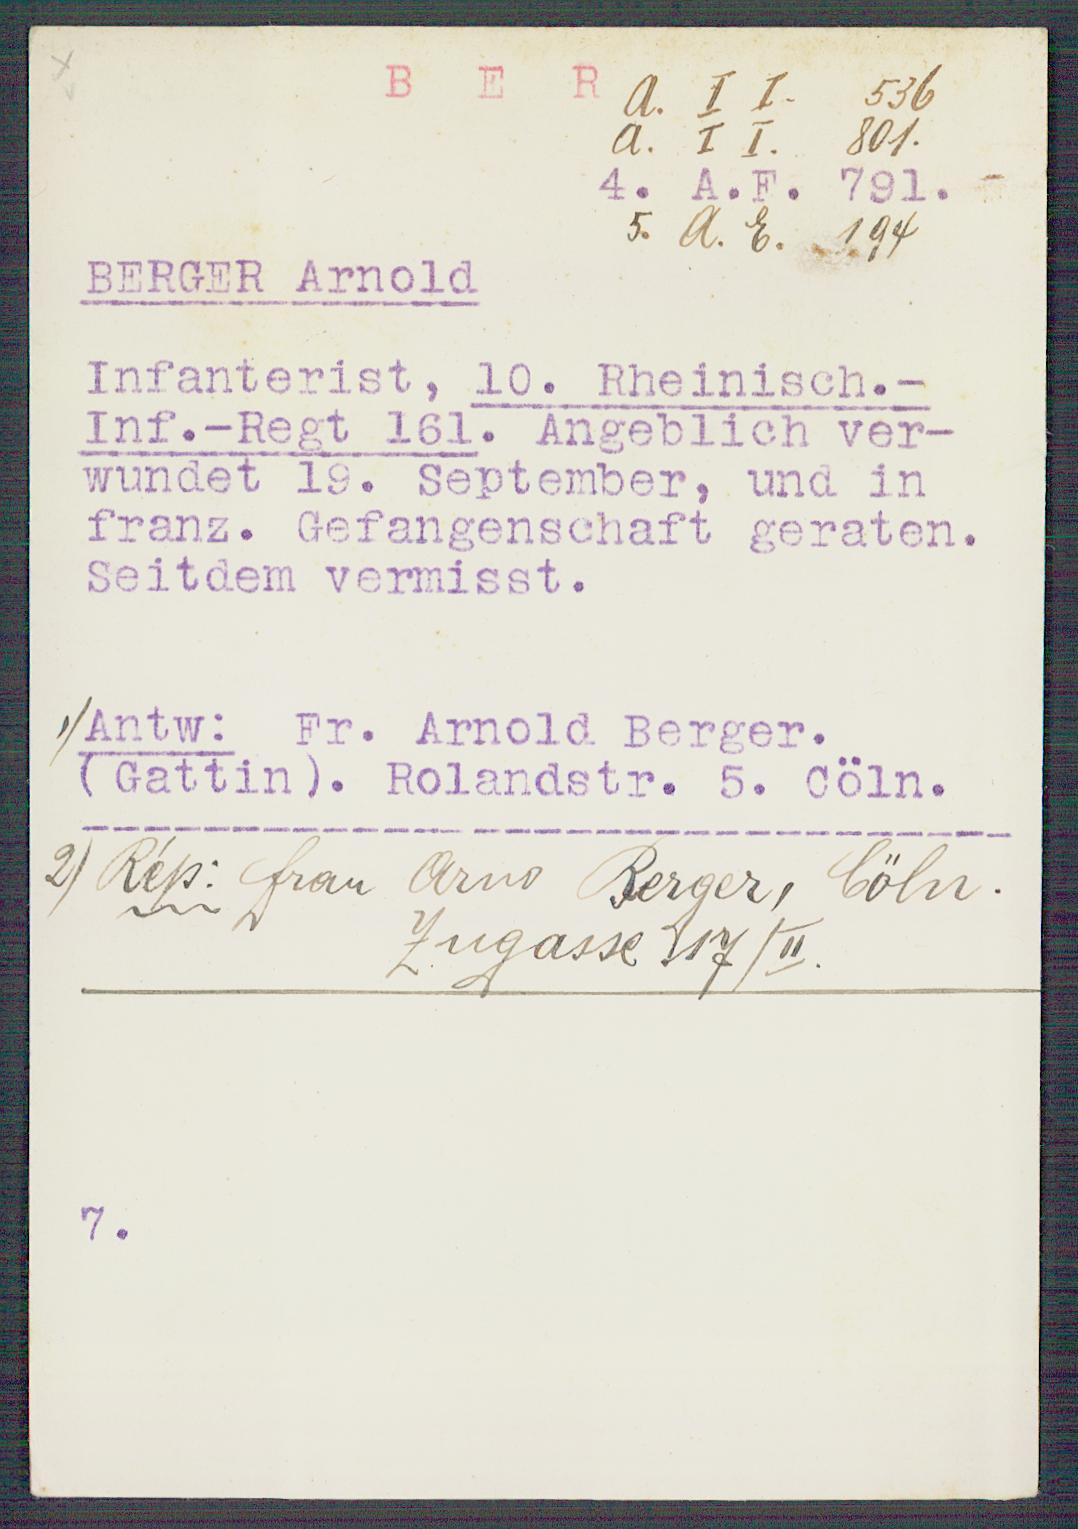 B E R
A. I I. 536
A. I I. 801.
4. A.F. 791.
5. A. E. 194
BERGER Arnold
Infanterist, 10. Rheinisch.-
Inf.-Regt 161. Angeblich ver-
wundet 19. September, und in
franz. Gefangenschaft geraten.
Seitdem vermisst.
1/ Antw: Fr. Arnold Berger.
(Gattin). Rolandstr. 5. Cöln.
2) Rép: frau Arno Berger, Cöln.
Zugasse 117/II.
7.